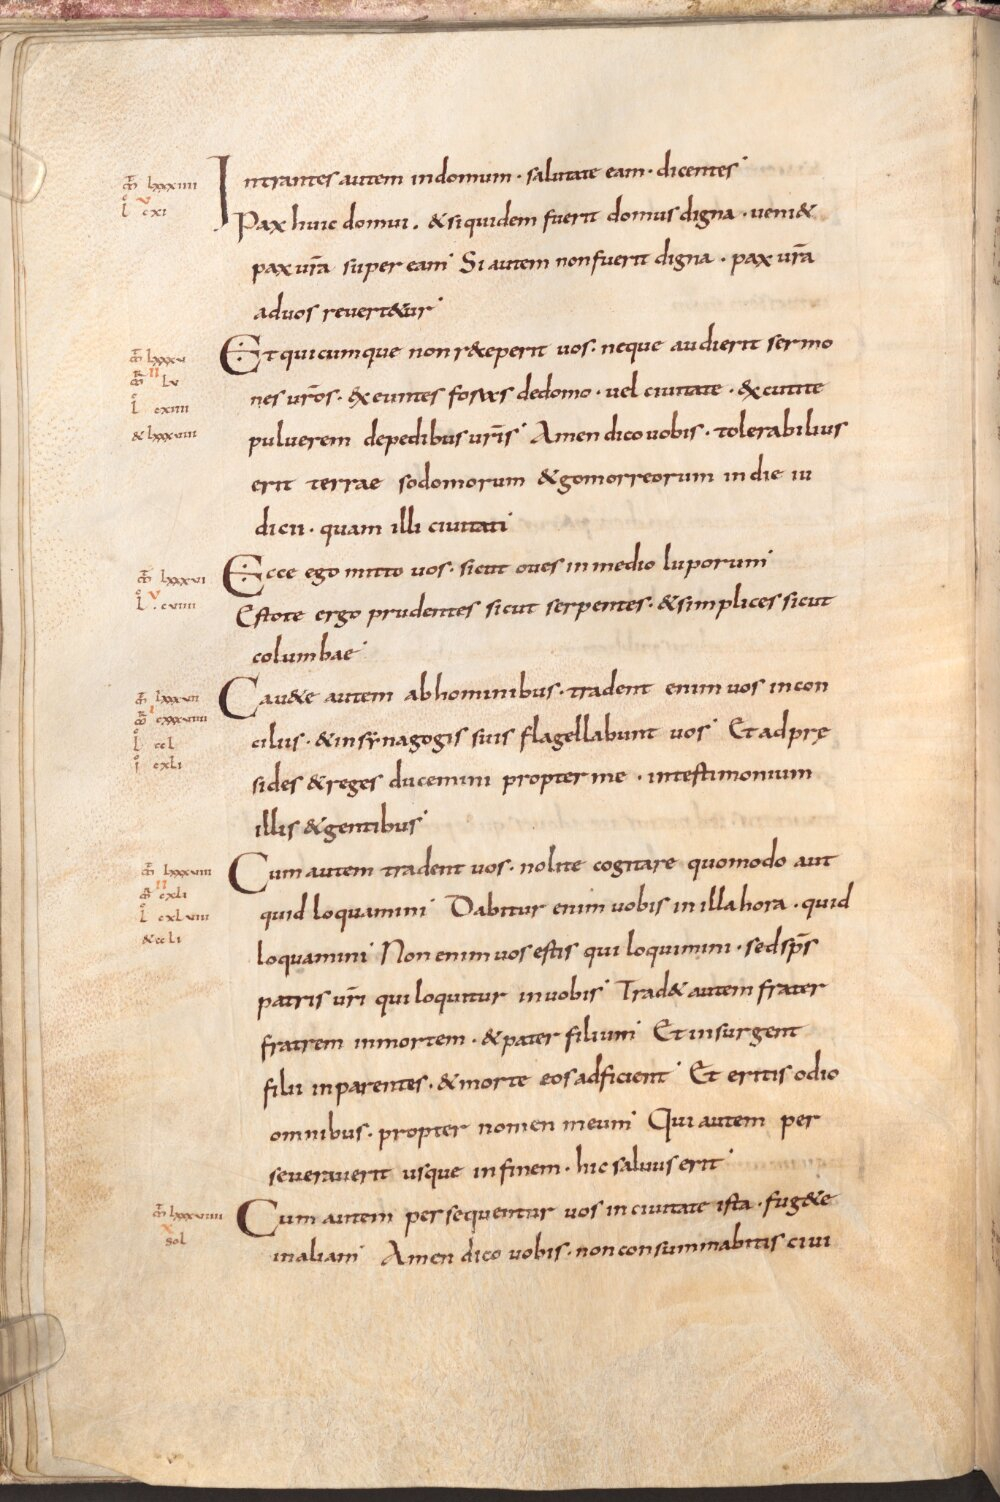 mt̄ lxxxiiii
Intrantes autem indomum · salutate eam · dicentes
lc̄ v cxi
Pax huic domui . &siquidem fuerit domus digna · ueni&
pax ur̄a super eam Si autem nonfuerit digna · pax ur̄a
aduos reuert&ur
mt̄ lxxxv
Et quicumque non r&eperit uos · neque audierit sermo
II lv
nes ur̄os · &xeuntes foras dedomo · uel ciuitate · &xcutite
cxiiii
&lxxxviii
puluerem depedibus ur̄is Amen dico uobis · tolerabilius
erit terrae sodomorum &gomorreorum in die iu
dicii · quam illi ciuitati
lxxxvi
Ecce ego mitto uos · sicut oues in medio luporum
v cviiii
Estote ergo prudentes sicut serpentes · &simplices sicut
columbae
lxxxvii
Cau&e autem abhominibus · tradent enim uos incon
I cxxxviiii
ccl
cilus · &insynagogis suis flagellabunt uos Et adprę
cxli
sides &reges ducemini propter me · intestimonium
illis &gentibus
lxxxviii
Cum autem tradent uos · nolite cogitare quomodo aut
II cxli
cxlviii
quid loquamini Dabitur enim uobis in illa hora · quid
&ccli
loquamini Non enim uos estis qui loquimini · sed sp̄s
patris ur̄i qui loquitur inuobis Trad& autem frater
fratrem inmortem · &pater filium Et insurgent
filii inparentes · &morte eos adficient Et eritis odio
omnibus · propter nomen meum Qui autem per
seuerauerit usque infinem · hic saluus erit
lxxxviiii
Cum autem persequentur uos in ciuitate ista · fug&e
x sol
inaliam Amen dico uobis · non consummabitis ciui